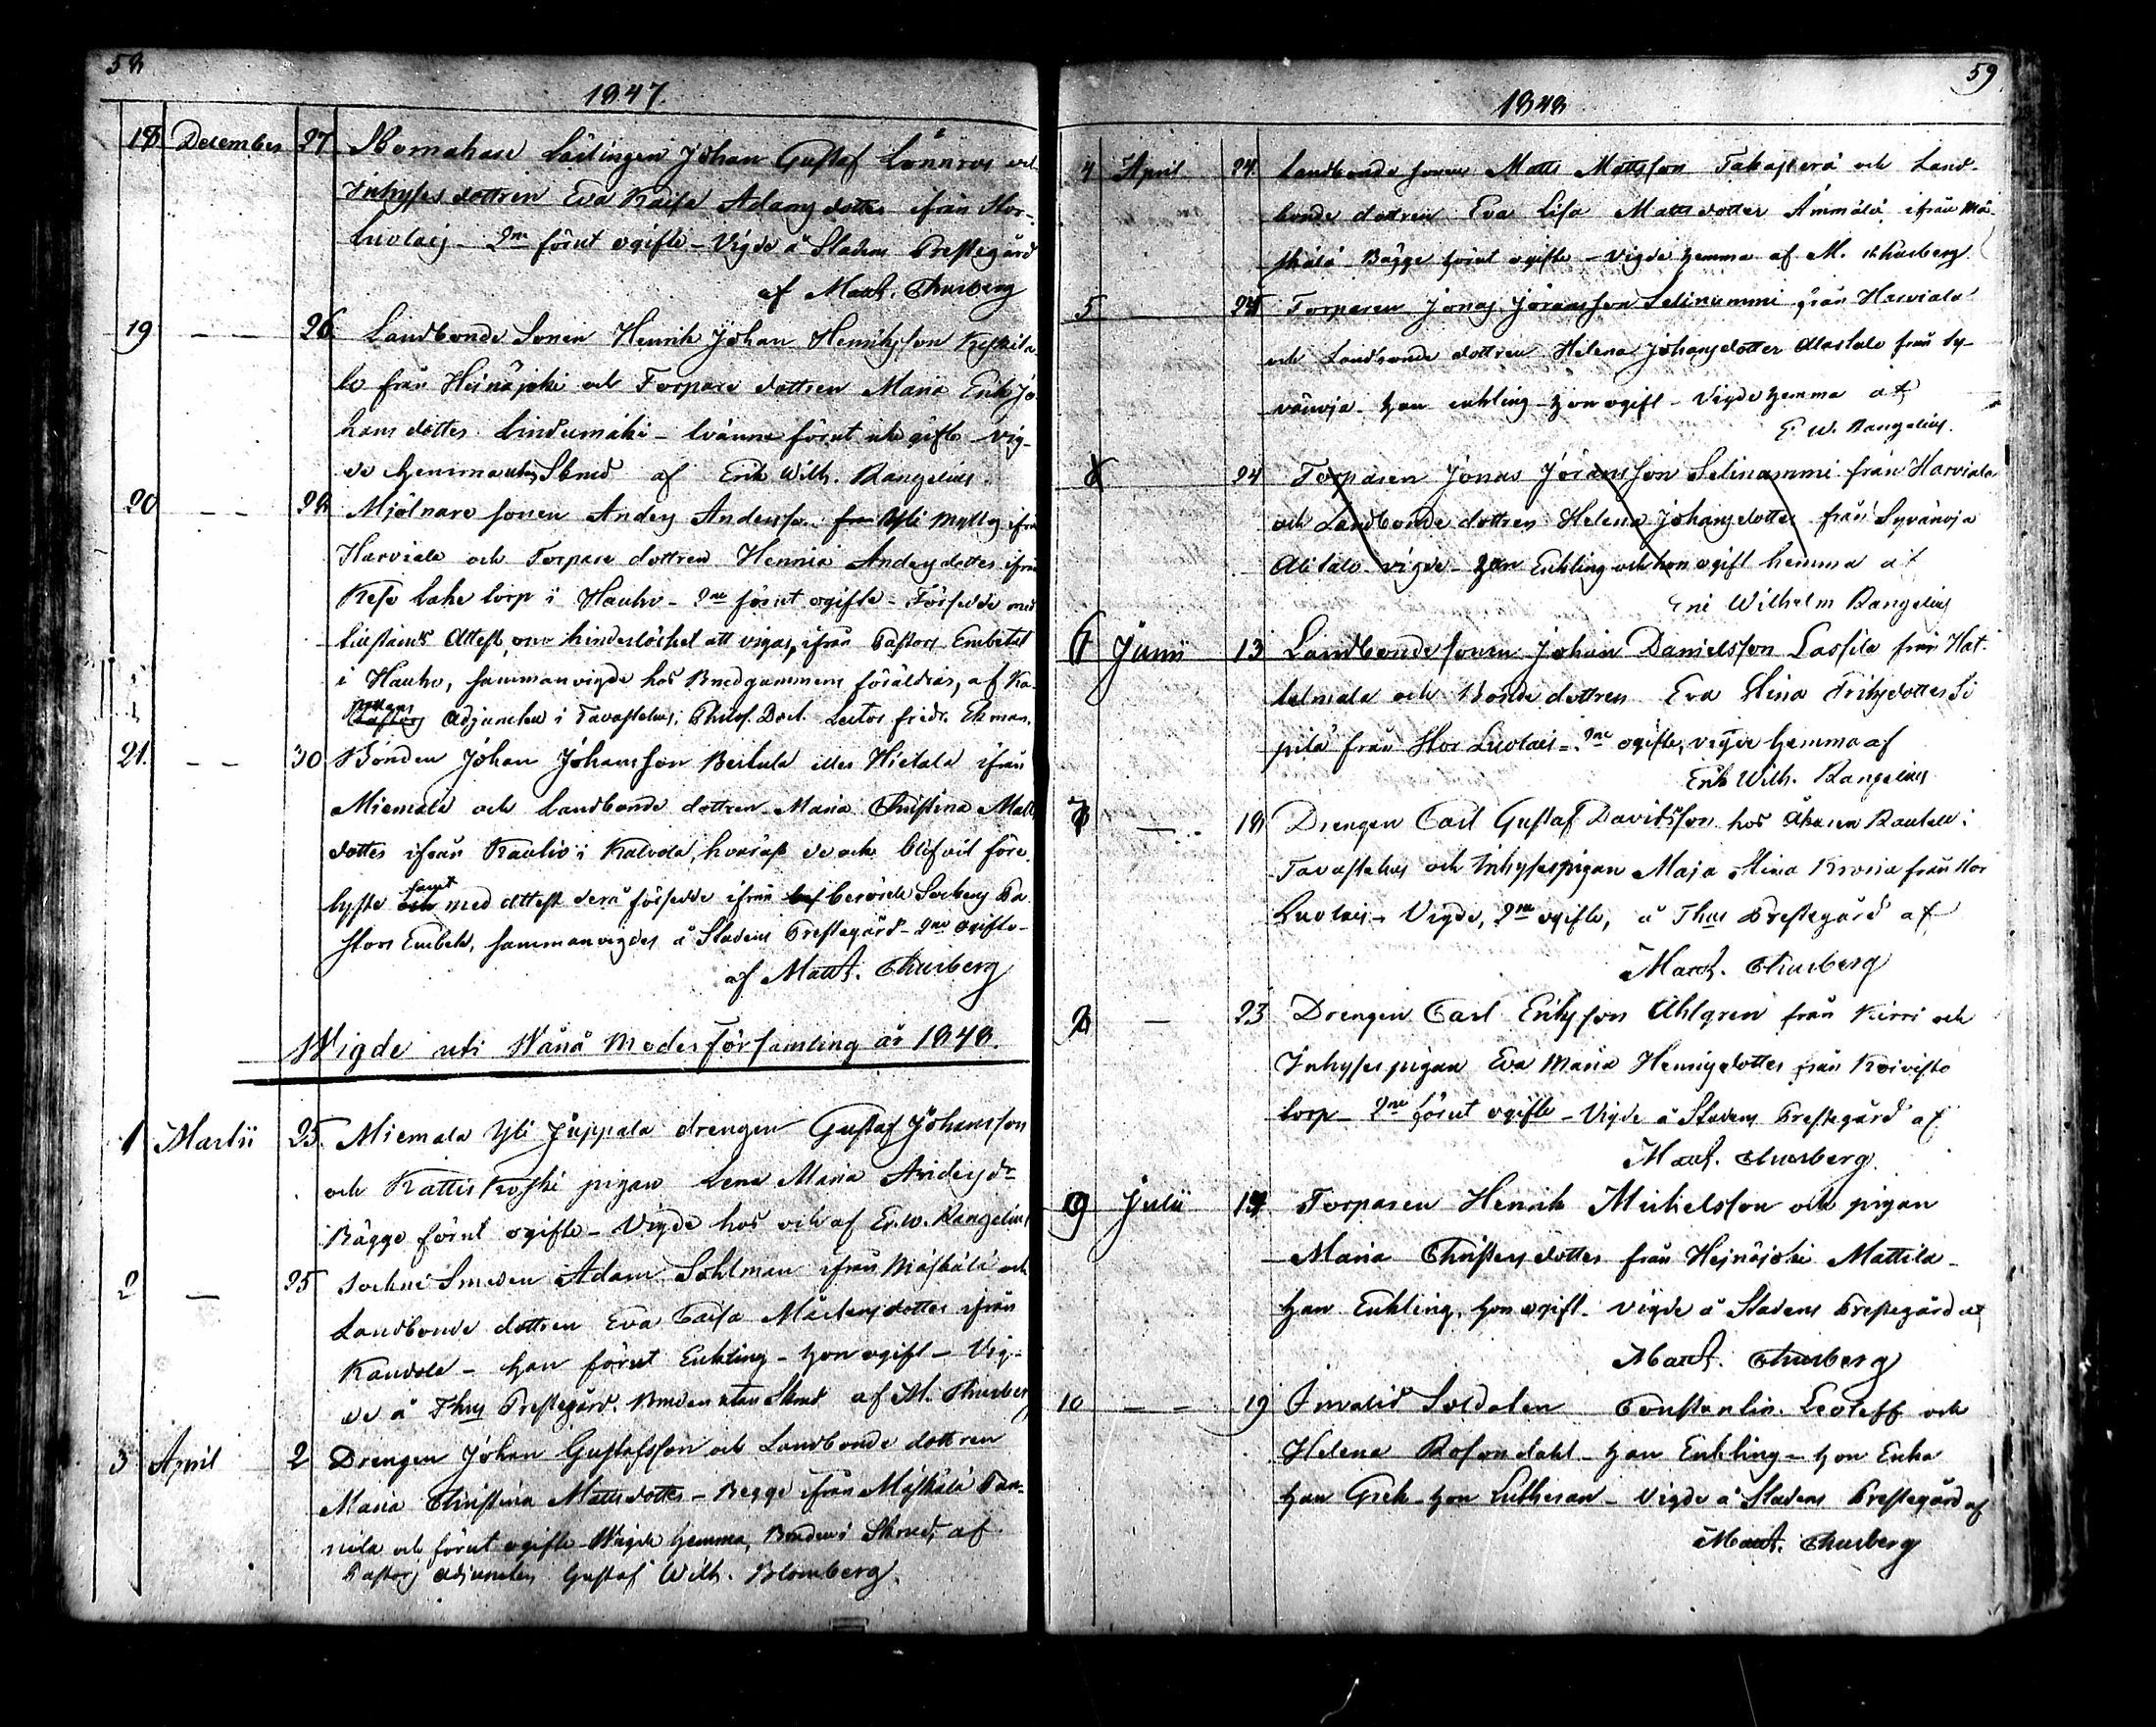 58
1847.
18 December 27 Skomakare Lärlingen Johan Gustaf Lönnros och
Inhyses dottren Eva Kaisa Adams dotter ifrån Stor-
Luolais - 2ne förut ogifte - Vigde å Stadens Prestegård
af Matth. Thurberg
19 — — 26 Landbonde Sonen Henrik Johan Henriksson
från Heinäjoki och Torpare dottren Maria Erik Jo-
hans dotter Lindumäki - förut ogifte - vig-
de hemma utan Skrud af Erik Wilh. Rangelius.
20 — — 28 Mjölnare sonen Anders Andersson Yli Mylly ifrån
Harviala och Torpare dottren Henrica Anders dotter ifrån
torp i Hauho - 2ne förut ogifte - Försedde med
Attest, om hinderlöshet att vigas, ifrån Pastors Embetet
i Hauho, sammanvigde hos Brudgummens föräldrar, af
Pastors Adjunkten i Tavastehus, Philos. Doct. Lector Fredr. Ekman.
21. — — 30 Bönden Johan Johansson Bertula eller Hietala ifrån
Miemala och Landbonde dottren Maria Christina Matts
dotter ifrån i Kalvola, hvaräst de ock blifvit före-
lyste samt med attest derå försedde ifrån berörde Sockens Pa-
stors Embete, sammanvigdes å Stadens Prestegård - 2ne ogifte -
af Matth. Thurberg
Wigde uti Wånå Moderförsamling år 1848.
1 Martii 25. Miemala Yli Juppala drengen Gustaf Johansson
och Kattis Koski pigan Lena Maria Anders dr
Bägge förut ogifte - Vigde hos och af Er. W. Rangelius
2 — 25 Sockne Smeden Adam Sohlman ifrån Mäskälä och
Landbonde dottren Eva Caisa Mårtens dotter ifrån
- han förut Enkling - hon ogift - Vig-
de å Thus Prestegård. Bruden utan Skrud af M. Thurberg
3 April 2 Drengen Johan Gustafsson och Landbonde dottren
Maria Christina Matts dotter - Begge ifrån Mäskälä Pan-
nila och förut ogifte - Wigde hemma, Bruden i Skrud, af
Pastors Adjuncten Gustaf Wilh. Blomberg.
59
1848
4 April 24. Landbonde sonen Matts Mattsson Takasperä och Land-
bonde dottren Eva Lisa Matts dotter Ämmälä ifrån Mä-
skälä Bägge förut ogifte - Vigde hemma af M. Thurberg
5 24 Torparen Jonas Jöransson Selinummi från Harviala
och Landbonde dottren Helena Johans dotter Alastalo från Sy-
vänoja. Han enkling - hon ogift - Vigde hemma af
E. W. Rangelius.
6 24 Torparen Jonas Jöransson Selinammi från Harviala
och Landbonde dottren Helena Johans dotter från Syvänoja
Alitalo vigde - han Enkling och hon ogift hemma af
Eric Wilhelm Rangelius
6 Junii 13 Landbonde sonen Johan Danielsson Lassila från Hat-
telmala och Bonde dottren Eva Stina Eriks dotter Si-
pilä från Stor Luolais - 2ne ogifte, vigde hemma af
Erik Wilh. Rangelius
7 — 18 Drengen Carl Gustaf Davidsson hos Åkaren i
Tavastehus och Inhysespigan Maja Stina från Stor
Luolais - Vigde, 2ne ogifte, å Thus Prestegård af
Matth. Thurberg
8 — 23 Drengen Carl Eriksson Ahlgren från Kirri och
Inhyses pigan Eva Maria Henrigs dotter från Koivisto
torp - 2ne förut ogifte - Vigde å Stadens Prestegård af
Matth. Thurberg.
9 Julii 14 Torparen Henrik Michelsson och pigan
Maria Christers dotter från Heinäjoki Mattila -
han Enkling, hon ogift - vigde å Stadens Prestegård af
Matth. Thurberg
10 — — 19 Invalid Soldaten Constantin Leoteff och
Helena Rosendahl - han Enkling - hon Enka
han Grek - hon Lutheran - Vigde å Stadens Prestegård af
Matth. Thurberg